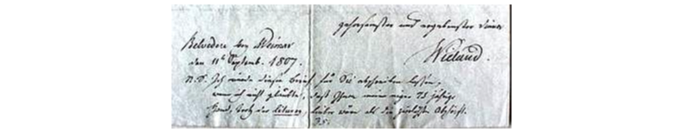 gehorsamster und ergebenster Diener
Wieland.
Belvedere bey Weimar
den 11t Septemb. 1807.
N.S. Ich würde diesen Brief für Sie abschreiben lassen,
wenn ich nicht glaubte, daß Ihnen meine eigne 75 jährige
Hand, trotz der lituren, lieber wäre als die zierlichste Abschrift.